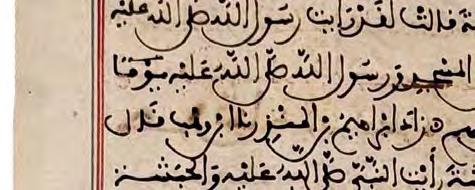 قالت لقد رأيت رسول الله صلى الله عليه
المسجد ورسول الله صلى الله عليه يوما
زاد ابراهيم بن المنذر نا ابن وهب قال
رأيت النبي صلى الله عليه والحبشة